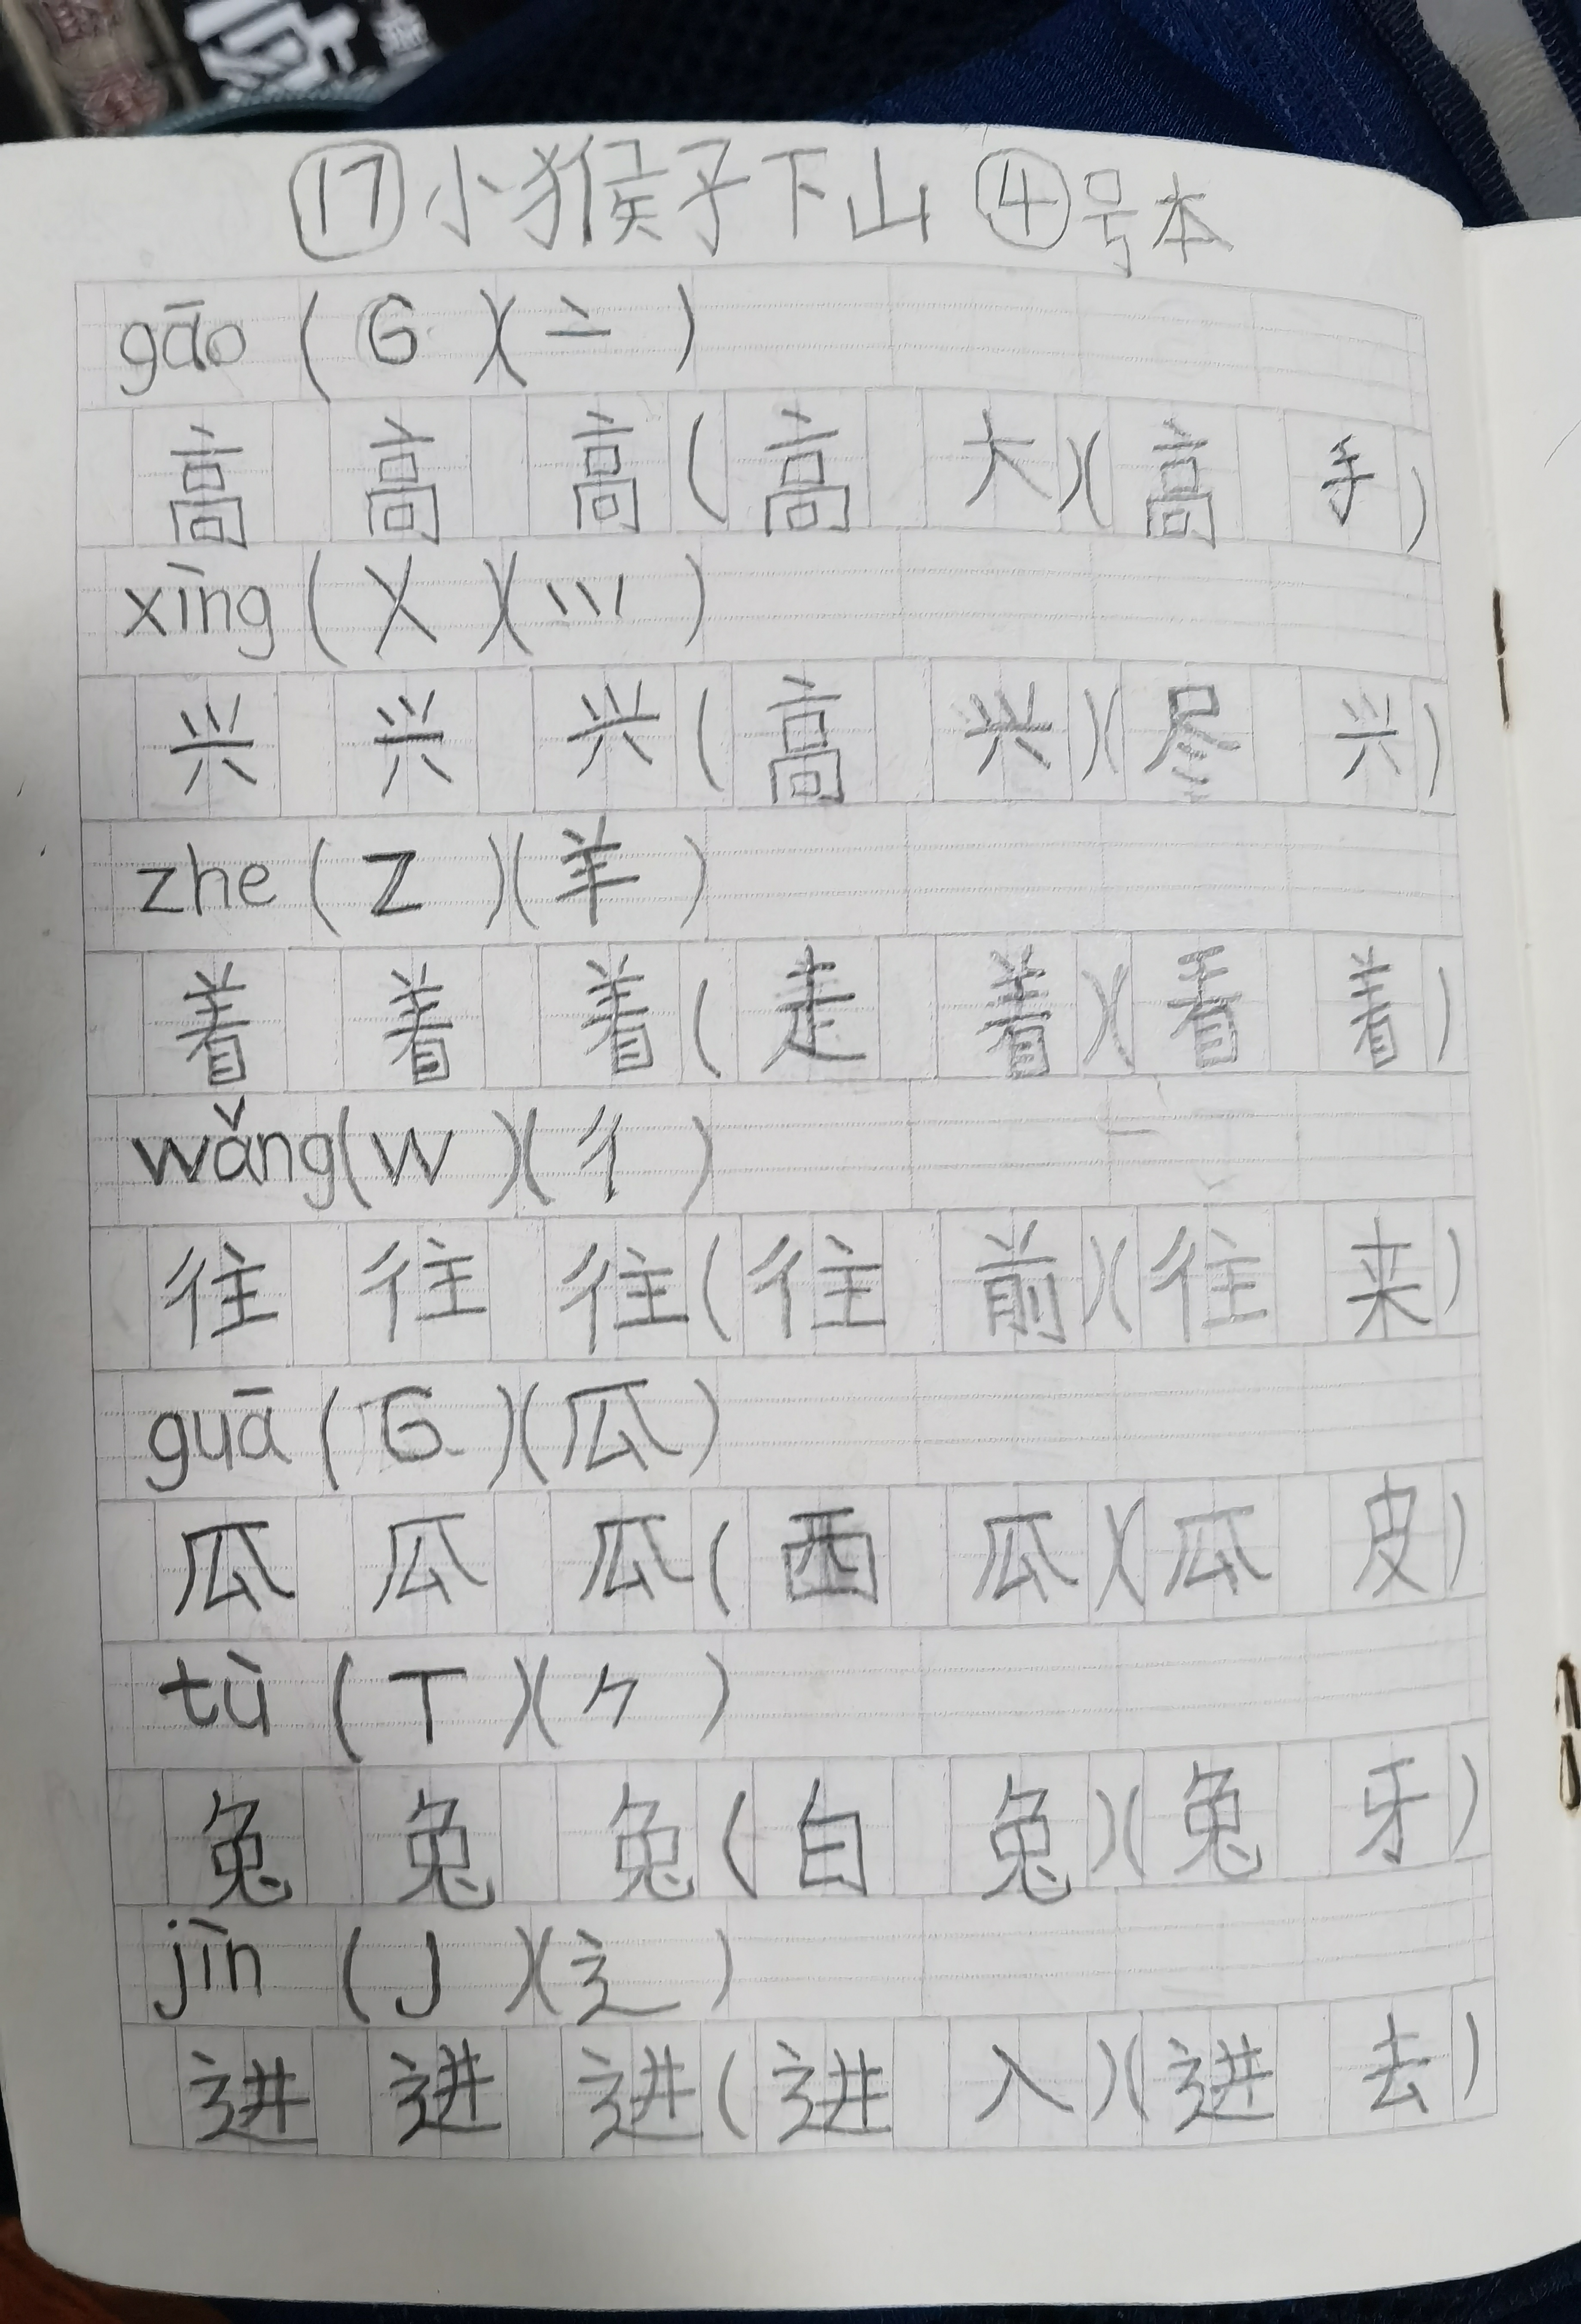 ⑰小猴子下山 ④号本
gāo ( G )(亠)
高 高 高 (高 大)(高 手)
xìng ( X )(⺍)
兴 兴 兴 (高 兴)(尽 兴)
zhe ( Z )(羊)
着 着 着 (走 着)(看 着)
wǎng ( W )(彳)
往 往 往 (往 前)(往 来)
guā ( G )(瓜)
瓜 瓜 瓜 (西 瓜)(瓜 皮)
tù ( T )(⺈)
兔 兔 兔 (白 兔)(兔 牙)
jìn ( J )(辶)
进 进 进 (进 入)(进 去)